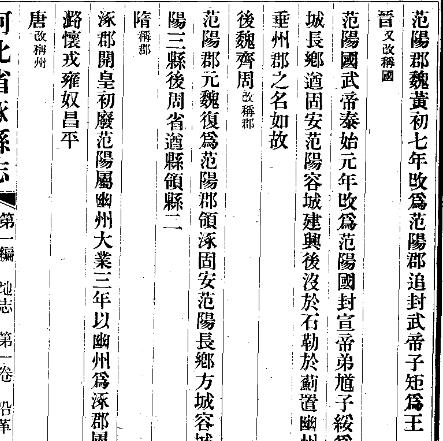 范陽郡魏黃初七年改爲范陽郡追封武帝子矩爲王
晉又改稱國
范陽國武帝泰始元年改爲范陽國封宣帝弟馗子綏爲
城長鄉遒固安范陽容城建興後沒於石勒於薊置幽州
垂州郡之名如故
後魏齊周改稱郡
范陽郡元魏復爲范陽郡領涿固安范陽長鄉方城容城
陽三縣後周省遒縣領縣二
隋稱郡
涿郡開皇初廢范陽屬幽州大業三年以幽州爲涿郡
潞懷戎雍奴昌平
唐改稱州
河北省涿縣志 第一編 地志 第一卷 沿革